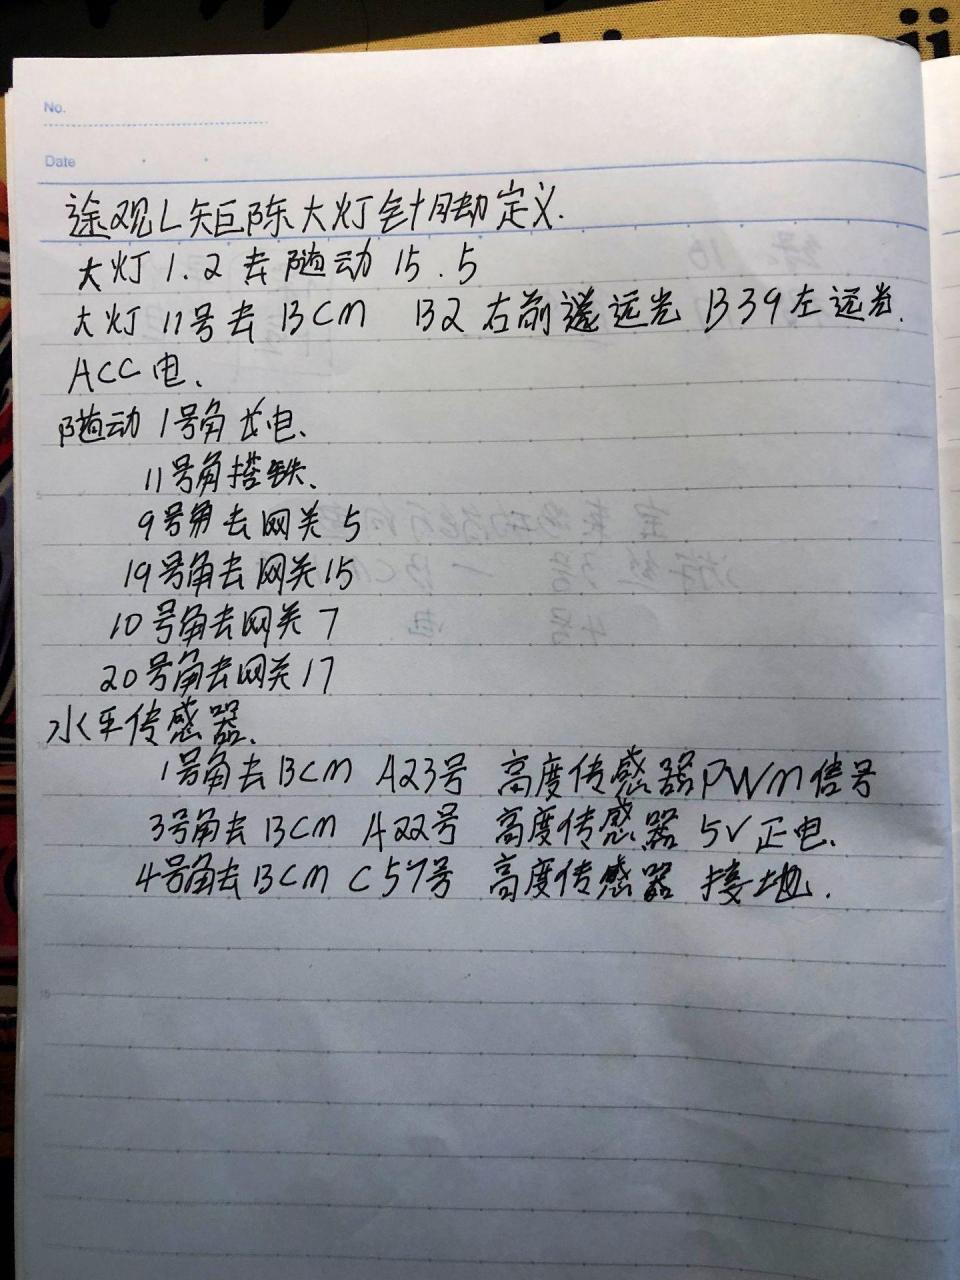 No.
Date
途观L矩阵大灯针脚定义.
大灯 1.2 去 随动 15.5
大灯 11号去 BCM B2 右前 远光 B39左远光.
ACC电.
随动 1号角 长电.
11号角搭铁.
9号角去网关 5
19号角去网关15
10号角去网关 7
20号角去网关 17
水平传感器.
1号角去BCM A23号 高度传感器PWM信号
3号角去BCM A22号 高度传感器 5V正电.
4号角去BCM C57号 高度传感器 接地.